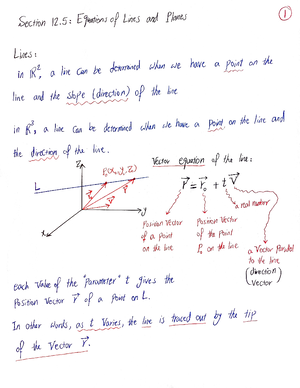 Section 12.5: Equations of Lines and Planes
1
Lines:
in R², a line can be determined when we have a point on the
line and the slope (direction) of the line
in R³, a line can be determined when we have a point on the line and
the direction of the line.
Vector equation of the line:
r = r₀ + t V
a real number
Position Vector
of a point
on the line
Position Vector
of the point
P₀ on the line
a Vector Parallel
to the line
(direction
Vector)
Z
L
y
x
Each Value of the "Parameter" t gives the
Position Vector r of a Point on L.
In other words, as t Varies, the line is traced out by the tip
of the Vector r.